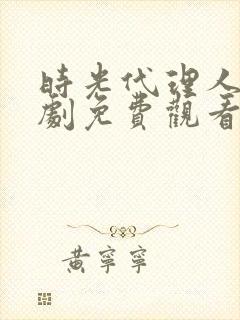 時光代理人
劇免費觀看
黃寧寧